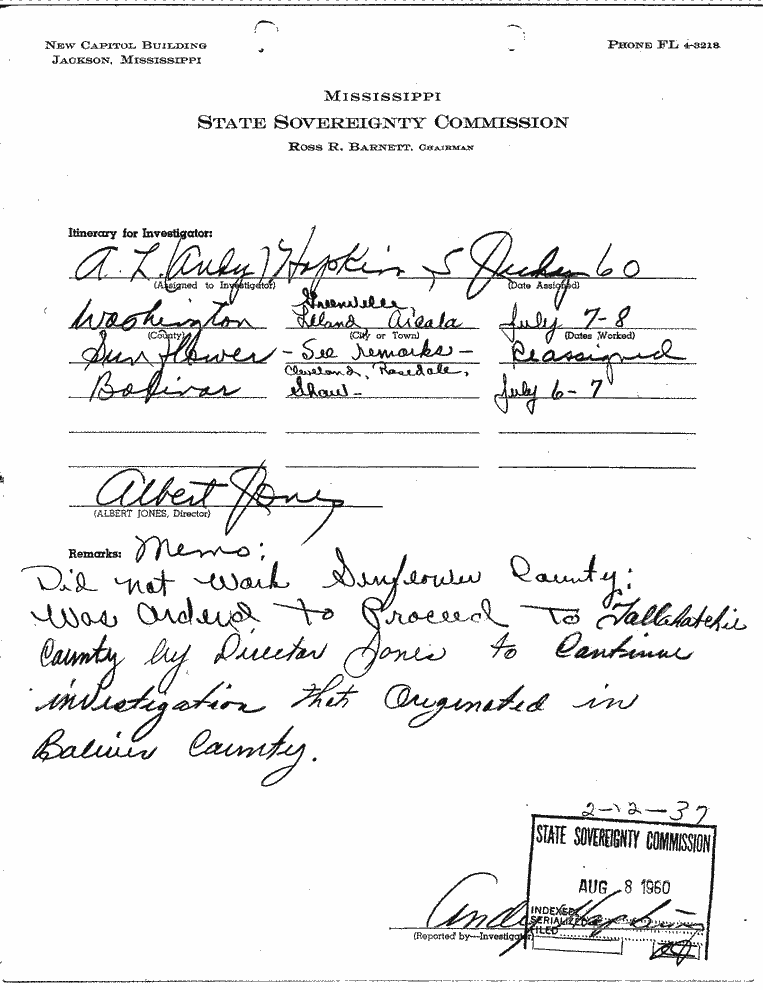 NEW CAPITOL BUILDING
JACKSON, MISSISSIPPI
PHONE FL 4-3218
MISSISSIPPI
STATE SOVEREIGNTY COMMISSION
ROSS R. BARNETT, CHAIRMAN
Itinerary for Investigator:
A. L. (Andy) Hopkins 5 July 60
(Assigned to Investigator) (Date Assigned)
Greenville
Washington Leland Arcola July 7-8
(County) (City or Town) (Dates Worked)
Sunflower - See remarks - Reassigned
Cleveland, Rosedale,
Bolivar Shaw - July 6-7
Albert Jones
(ALBERT JONES, Director)
Remarks: Memo:
Did not work Sunflower County:
Was ordered to Proceed to Tallahatchie
County by Director Jones to Continue
investigation that Originated in
Bolivar County.
2-12-37
STATE SOVEREIGNTY COMMISSION
AUG 8 1960
INDEXED
SERIALIZED
FILED
Andy Hopkins
(Reported by—Investigator)